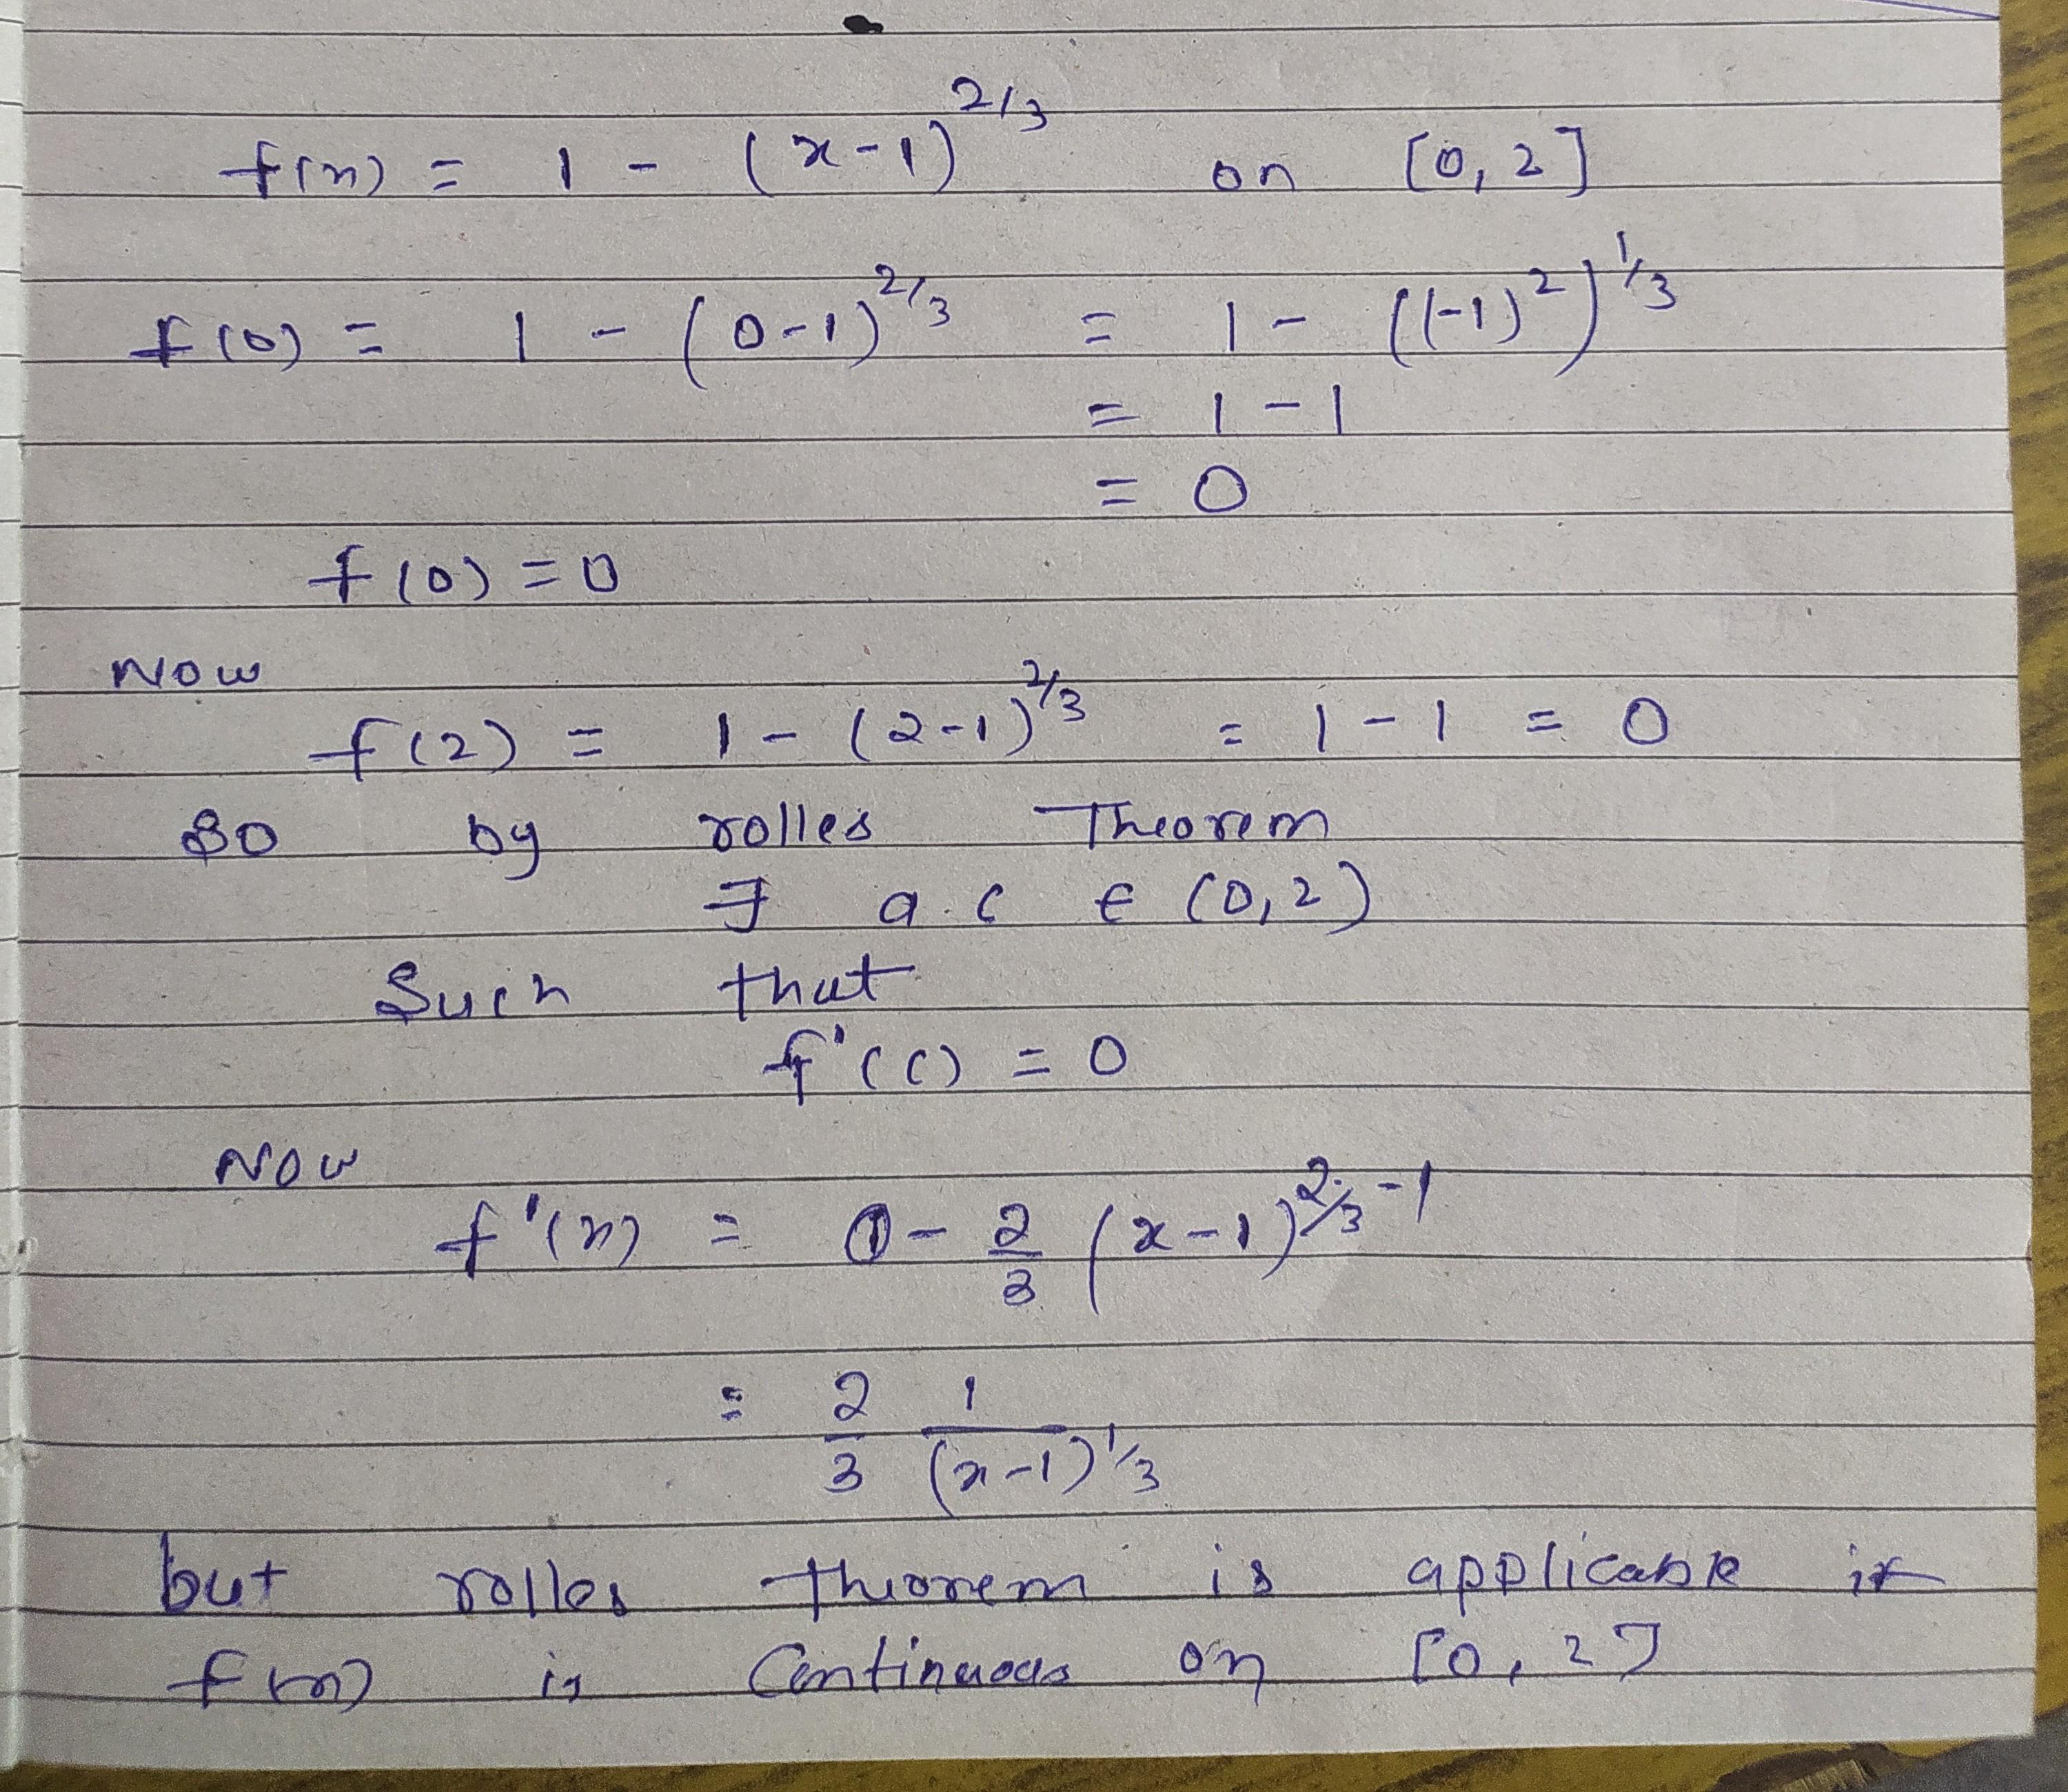 f(x) = 1 - (x-1)^{2/3} on [0, 2]
f(0) = 1 - (0-1)^{2/3} = 1 - ((-1)^2)^{1/3}
= 1 - 1
= 0
f(0) = 0
Now
f(2) = 1 - (2-1)^{2/3} = 1 - 1 = 0
So by rolles Theorem
∃ a c ∈ (0, 2)
Such that
f'(c) = 0
Now
f'(x) = 0 - 2/3 (x-1)^{2/3 - 1}
= 2/3 1/(x-1)^{1/3}
but rolles theorem is applicable if
f(x) is Continuous on [0, 2]